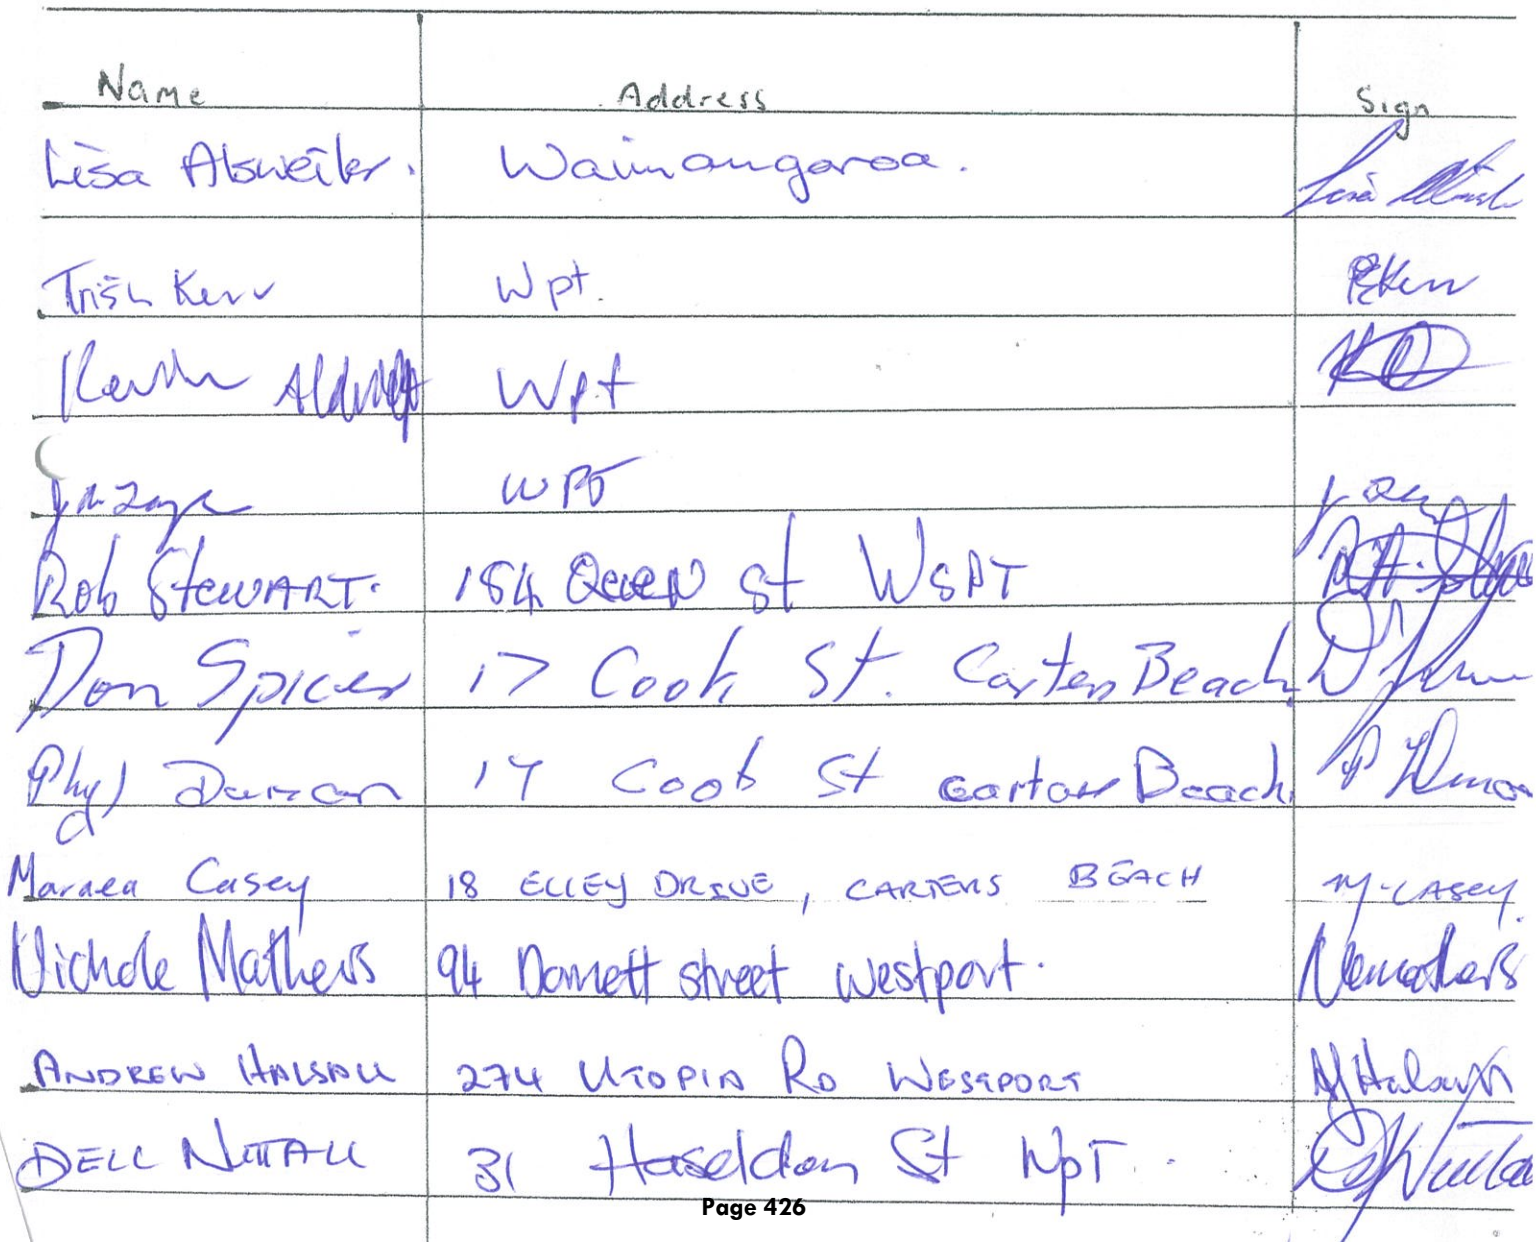 Name Address Sign
Lisa Absweiler. Waimangaroa.
Trish Kerr Wpt. PKerr
Wpt
WPT
Rob Stewart. 184 Queen St WSPT
Don Spicer 17 Cook St. Carters Beach
Phyl Duncan 17 Cook St Carters Beach
Maraea Casey 18 ELLEY DRIVE, CARTERS BEACH M-CASEY.
Nichole Mathers 94 Domett street Westport. Nemathers
ANDREW HALSALL 274 UTOPIA RD WESTPORT AJHalsall
DELL NUTTALL 31 Haselden St WpT.
Page 426